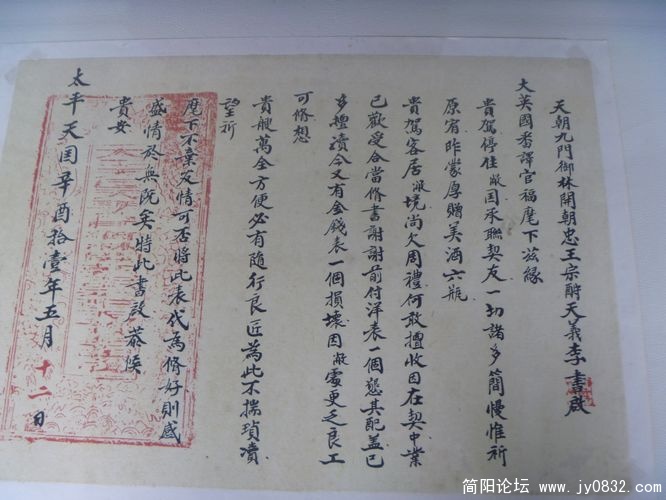 天朝九門御林開朝忠王宗酧天義李 書啟
大英國番譯官福麾下茲緣
貴駕停住敝国承聯契友一切諸多簡慢惟祈
原宥昨蒙厚贈美酒六瓶
貴駕客居敝境尚欠周禮何敢擅收因在契中業
已歡受合當脩書謝謝前付洋表一個懇其配盖已
多擅瀆今又有金錢表一個損壞因敝處更乏良工
可脩想
貴艘萬全方便必有隨行良匠為此不揣瑣瀆
望祈
麾下不棄友情可否將此表代為脩好則感
盛情於無既矣特此書啟 恭候
貴安
太平天囯辛酉拾壹年五月 十二 日
简阳论坛 - www.jy0832.com